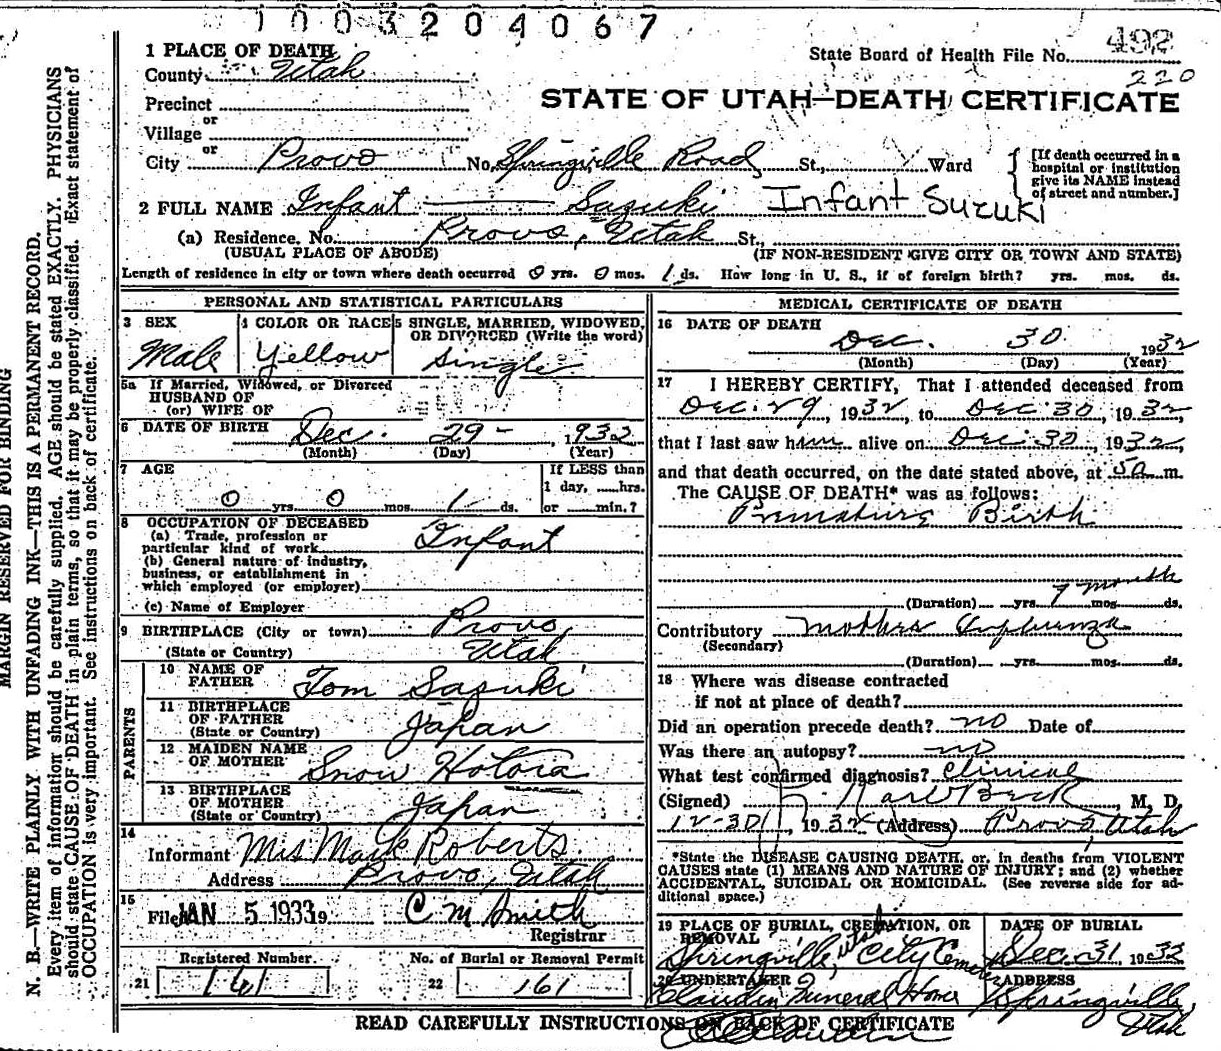 1003204067
State Board of Health File No. 492
220
1 PLACE OF DEATH
County Utah
STATE OF UTAH—DEATH CERTIFICATE
Precinct
or
Village
or
City Provo No. Springville Road St., Ward
[If death occurred in a hospital or institution give its NAME instead of street and number.]
2 FULL NAME Infant Sazuki Infant Suzuki
(a) Residence, No. Provo, Utah St.,
(USUAL PLACE OF ABODE) (IF NON-RESIDENT GIVE CITY OR TOWN AND STATE)
Length of residence in city or town where death occurred 0 yrs. 0 mos. 1 ds. How long in U. S., if of foreign birth? yrs. mos. ds.
PERSONAL AND STATISTICAL PARTICULARS
3 SEX
Male
4 COLOR OR RACE
Yellow
5 SINGLE, MARRIED, WIDOWED, OR DIVORCED (Write the word)
Single
5a If Married, Widowed, or Divorced
HUSBAND OF
(or) WIFE OF
6 DATE OF BIRTH Dec. 29- , 1932
(Month) (Day) (Year)
7 AGE
0 yrs. 0 mos. 1 ds.
If LESS than
1 day, ....hrs.
or .... min.?
8 OCCUPATION OF DECEASED
(a) Trade, profession or
particular kind of work Infant
(b) General nature of industry,
business, or establishment in
which employed (or employer)
(c) Name of Employer
9 BIRTHPLACE (City or town) Provo,
(State or Country) Utah
PARENTS
10 NAME OF
FATHER Tom Sazuki
11 BIRTHPLACE
OF FATHER
(State or Country) Japan
12 MAIDEN NAME
OF MOTHER Snow Hotora
13 BIRTHPLACE
OF MOTHER
(State or Country) Japan
14
Informant Mrs Mark Roberts
Address Provo, Utah
15
Filed JAN 5 1933 19 C M Smith
Registrar
Registered Number.
21 161
No. of Burial or Removal Permit
22 161
MEDICAL CERTIFICATE OF DEATH
16 DATE OF DEATH
Dec. 30 1932
(Month) (Day) (Year)
17 I HEREBY CERTIFY, That I attended deceased from
Dec. 29, 1932, to Dec. 30, 1932
that I last saw him alive on Dec. 30, 1932
and that death occurred, on the date stated above, at 5a m.
The CAUSE OF DEATH* was as follows:
Premature Birth
7 month
(Duration) yrs. mos. ds.
Contributory Mothers Influenza
(Secondary)
(Duration) yrs. mos. ds.
18 Where was disease contracted
if not at place of death?
Did an operation precede death? no Date of
Was there an autopsy? no
What test confirmed diagnosis? Clinical
(Signed) Karl Beck, M. D.
12-30, 1932 (Address) Provo Utah
*State the DISEASE CAUSING DEATH, or, in deaths from VIOLENT
CAUSES state (1) MEANS AND NATURE OF INJURY; and (2) whether
ACCIDENTAL, SUICIDAL OR HOMICIDAL. (See reverse side for additional space.)
19 PLACE OF BURIAL, CREMATION, OR REMOVAL
Springville, Utah City Cemetery
DATE OF BURIAL
Dec. 31, 1932
20 UNDERTAKER
Claudin Funeral Home
ADDRESS
Springville, Utah
READ CAREFULLY INSTRUCTIONS ON BACK OF CERTIFICATE
MARGIN RESERVED FOR BINDING
N. B.—WRITE PLAINLY WITH UNFADING INK—THIS IS A PERMANENT RECORD.
Every item of information should be carefully supplied. AGE should be stated EXACTLY. PHYSICIANS
should state CAUSE OF DEATH in plain terms, so that it may be properly classified. Exact statement of
OCCUPATION is very important. See instructions on back of certificate.